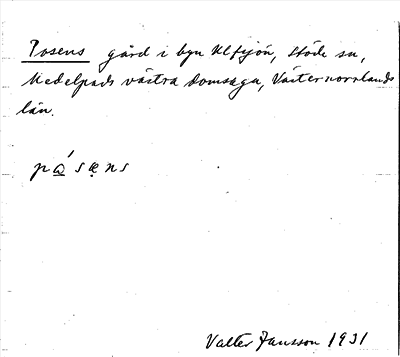 Posens gård i byn Ulfsjön, Stöde sn,
Medelpads västra domsaga, Västernorrlands
län.
påsęns
Valter Jansson 1931